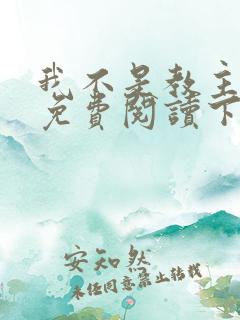 我不是教主
免費閱讀下
安知然
未经同意禁止转载